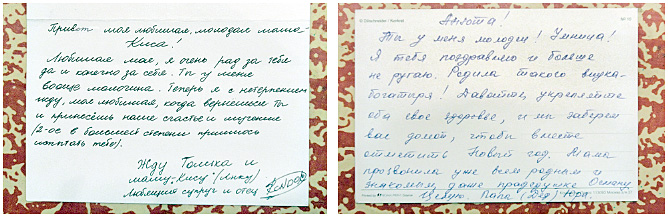 Привет моя любимая, молодая мама-
Киса!
Любимая моя, я очень рад за тебя
да и конечно за себя. Ты у меня
вообще молодчина. Теперь я с нетерпением
жду, моя любимая, когда вернешься ты
и принесёшь наше счастье и мучение
(2-ое в большей степени пришлось
испытать тебе).
Жду Толика и
маму-Кису (Анюту)
Любящий супруг и отец
Анюта!
Ты у меня молодец! Умница!
Я тебя поздравляю и больше
не ругаю. Родила такого внука-
богатыря! Давайте, укрепляйте
оба свое здоровье, и мы заберем
вас домой, чтобы вместе
отметить Новый год. Мама
прозвонила уже всем родным и
знакомым даже прадедушке
Целую Папа (Дед) Юра.